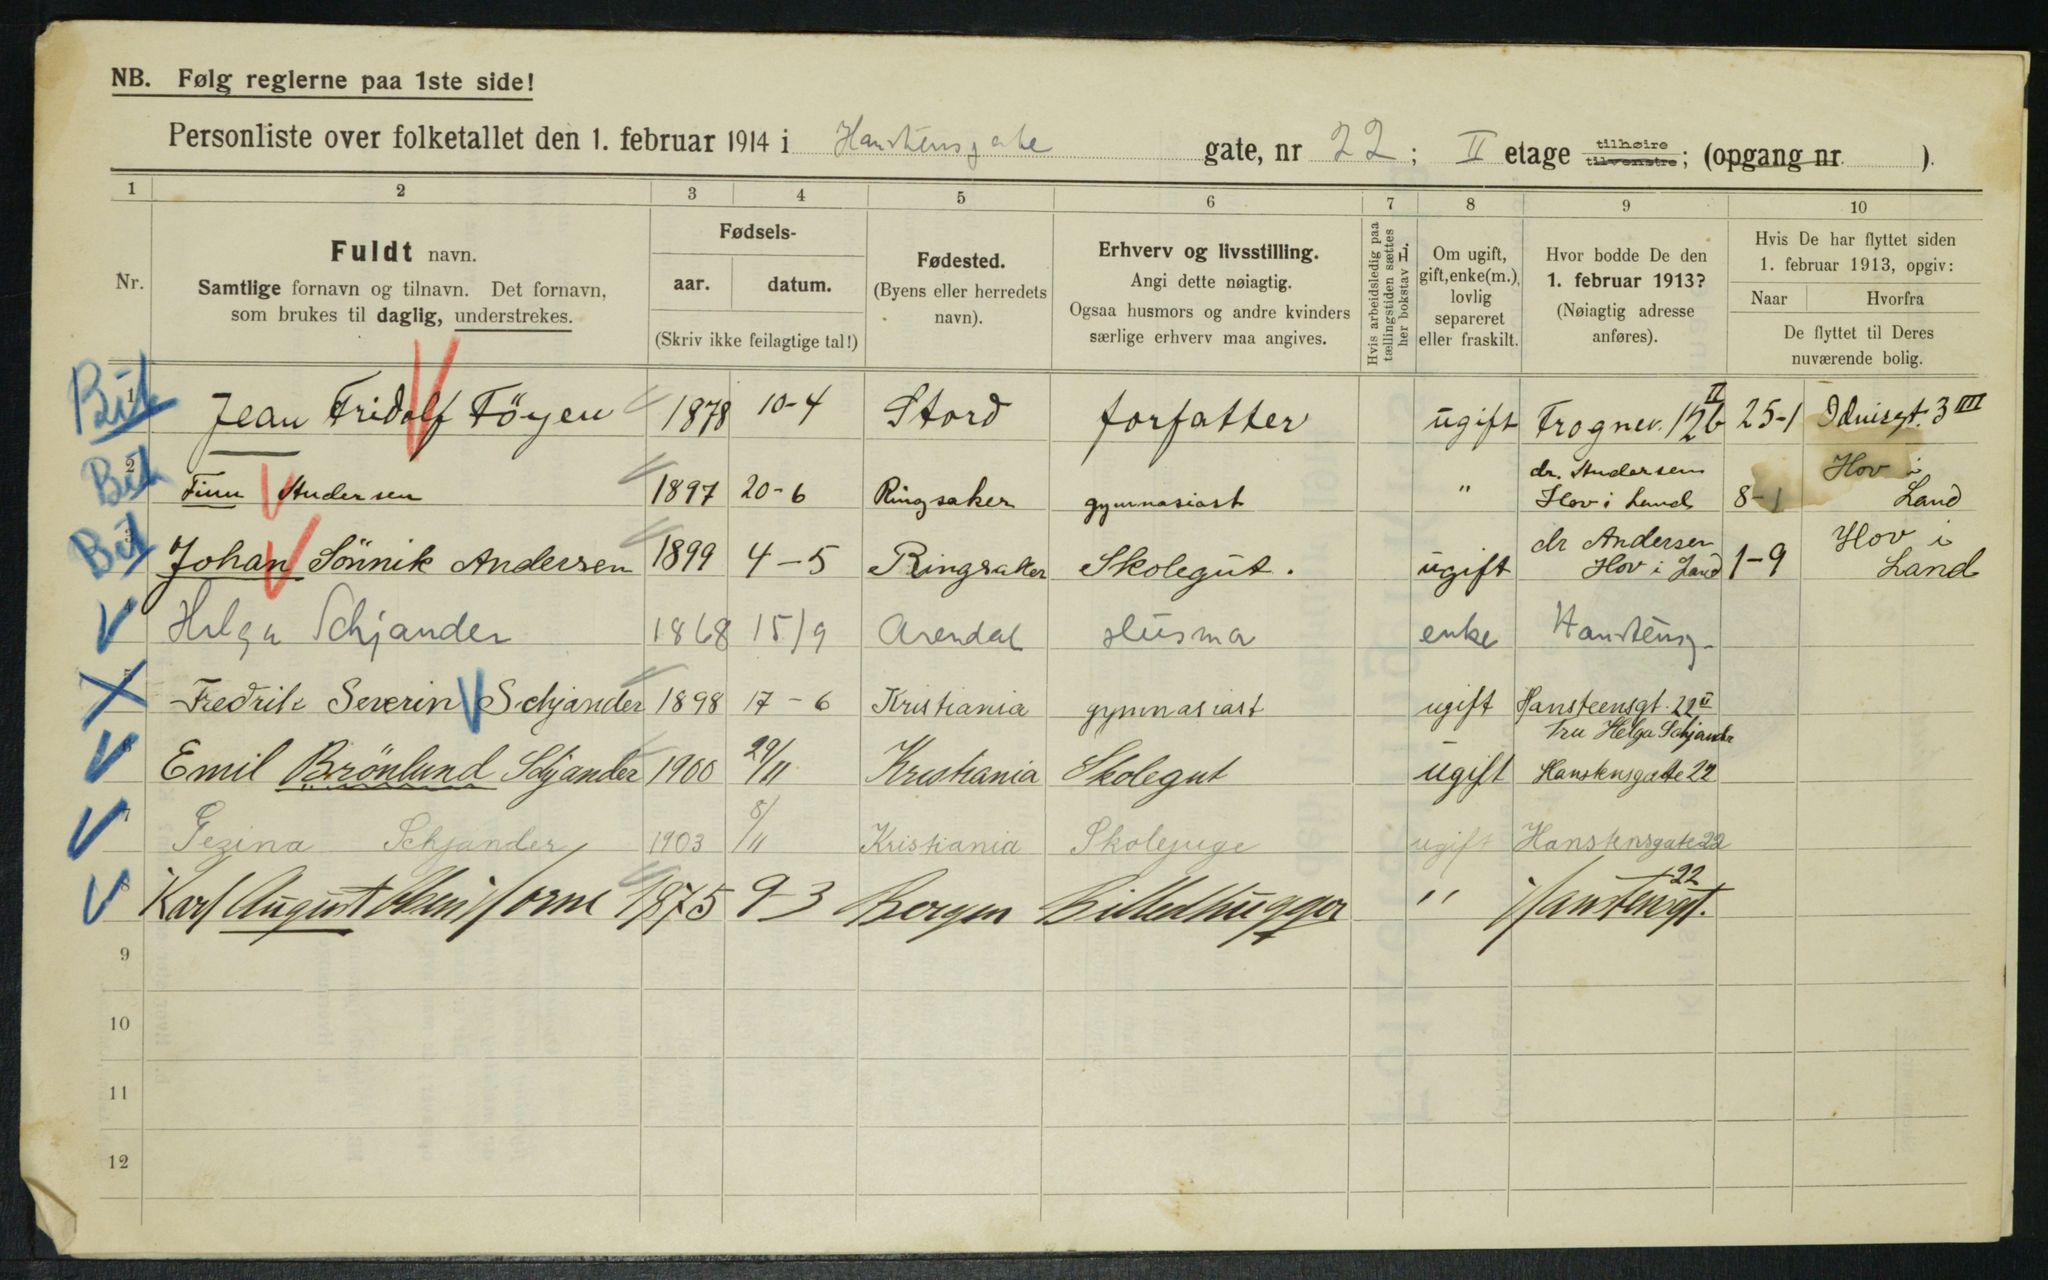 NB. Følg reglerne paa 1ste side!
Personliste over folketallet den 1. februar 1914 i Hanstensgate gate, nr 22; II etage tilhøire tilvenstre; (opgang nr ).
1 2 3 4 5 6 7 8 9 10
Nr.
Fuldt navn.
Samtlige fornavn og tilnavn. Det fornavn,
som brukes til daglig, understrekes.
Fødsels-
aar. datum.
(Skriv ikke feilagtige tal!)
Fødested.
(Byens eller herredets
navn).
Erhverv og livsstilling.
Angi dette nøiagtig.
Ogsaa husmors og andre kvinders
særlige erhverv maa angives.
Hvis arbeidsledig paa
tællingstiden sættes
her bokstav L.
Om ugift,
gift, enke(m.),
lovlig
separeret
eller fraskilt.
Hvor bodde De den
1. februar 1913?
(Nøiagtig adresse
anføres).
Hvis De har flyttet siden
1. februar 1913, opgiv:
Naar Hvorfra
De flyttet til Deres
nuværende bolig.
1 Jean Fridolf Föyen 1878 10-4 Stord forfatter ugift Frognerv. 12b II 25-1 Iduisgt. 3 III
2 Finn Andersen 1897 20-6 Ringsaker gymnasiast " dr. Andersen Hov i Land 8-1 Hov i Land
3 Johan Sönnik Andersen 1899 4-5 Ringsaker Skolegut. ugift dr Andersen Hov i Land 1-9 Hov i Land
4 Helga Schjander 1868 15/9 Arendal Husmor enke Hanstensg.
5 Fredrik Severin Schjander 1898 17-6 Kristiania gymnasiast ugift Hansteensgt. 22 II
Fru Helga Schjander
6 Emil Brönlund Schjander 1900 29/11 Kristiania Skolegut ugift Hanstensgate 22
7 Gezina Schjander 1903 8/11 Kristiania Skolepige ugift Hanstensgate 22
8 Karl August 1875 9-3 Bergen Billedhugger " Hanstensgt. 22
9
10
11
12